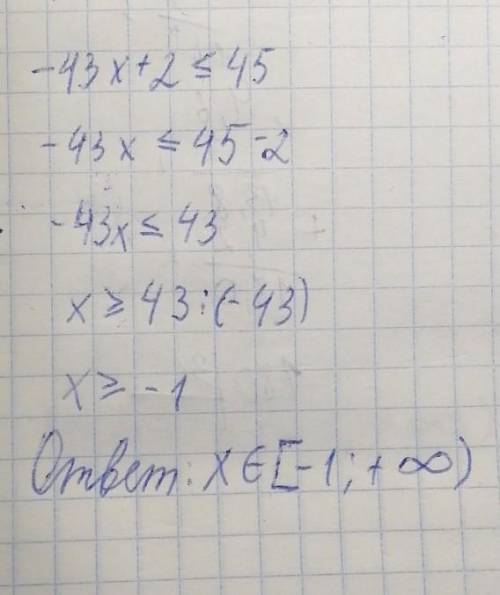 -43x+2 ≤ 45
-43x ≤ 45-2
-43x ≤ 43
x ≥ 43:(-43)
x ≥ -1
Ответ: x∈[-1;+∞)